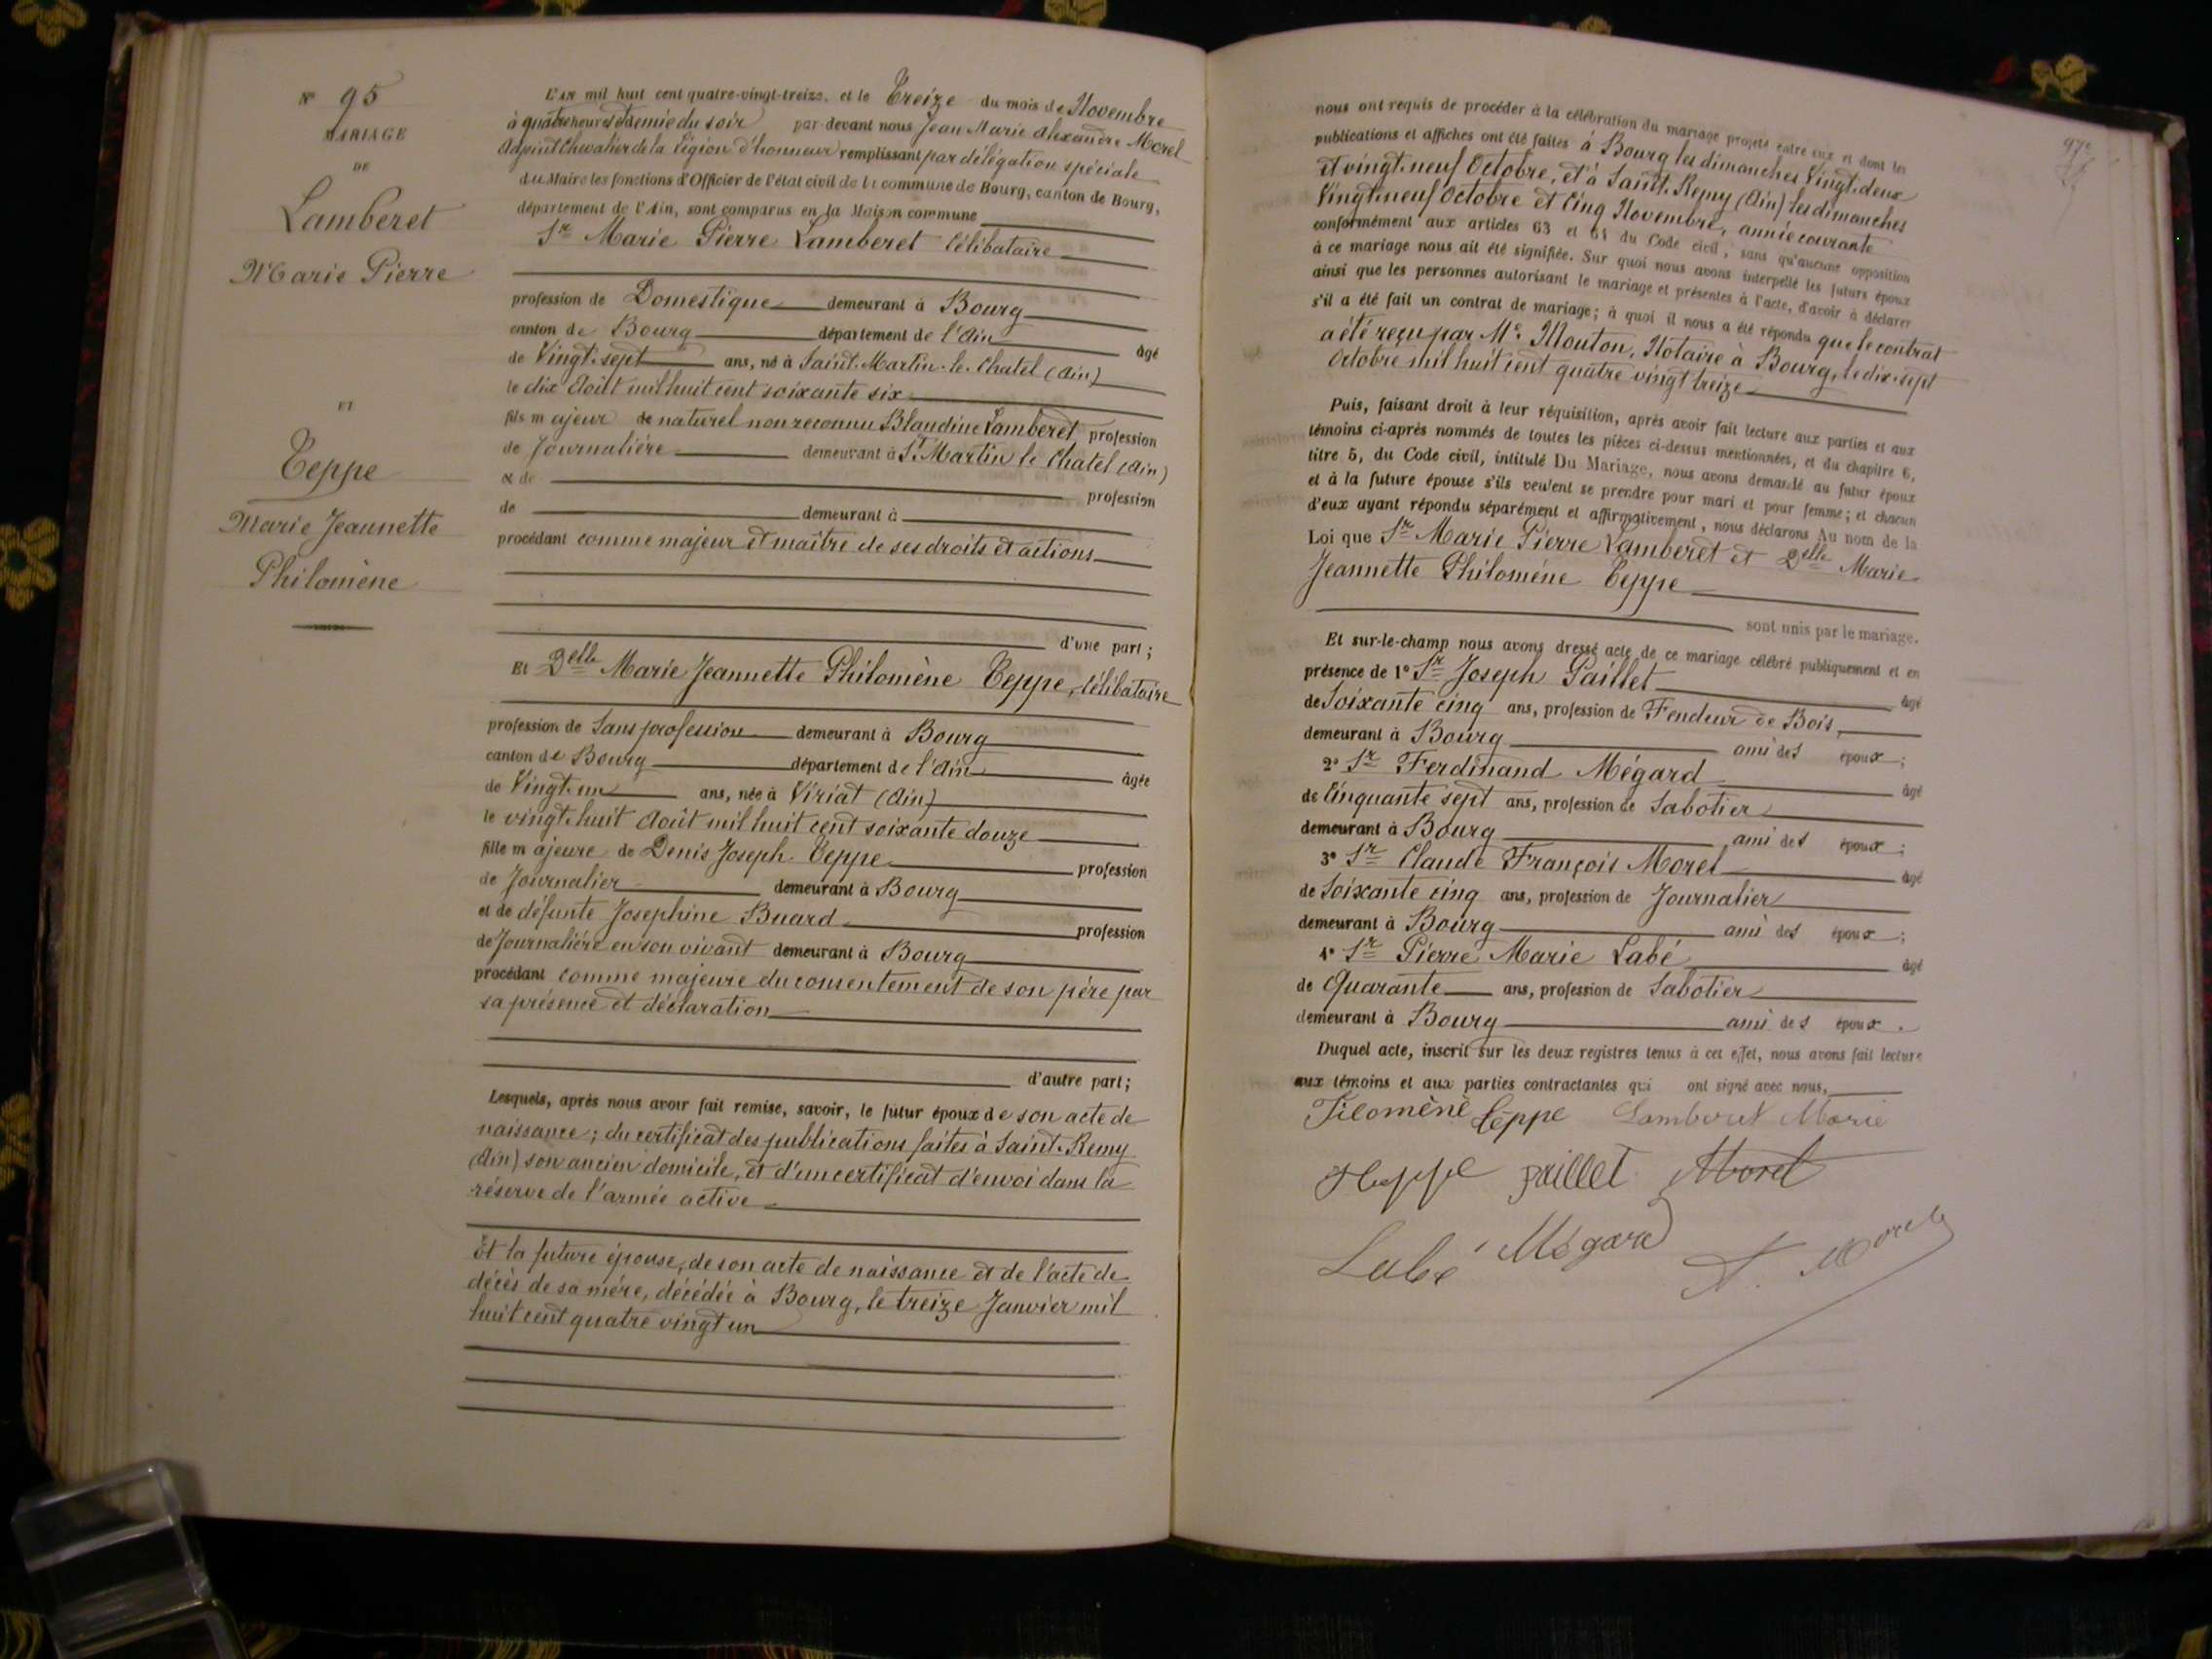 N° 95
MARIAGE
DE
Lamberet
Marie Pierre
ET
Teppe
Marie Jeannette
Philomène
L'AN mil huit cent quatre-vingt-treize, et le Treize du mois de Novembre
à quatre heures et demie du soir par-devant nous Jean Marie Alexandre Morel
Adjoint Chevalier de la légion d'honneur remplissant par délégation spéciale
du Maire les fonctions d'Officier de l'état civil de la commune de Bourg, canton de Bourg,
département de l'Ain, sont comparus en la Maison commune
Sr Marie Pierre Lamberet Célibataire
profession de Domestique demeurant à Bourg
canton de Bourg département de l'Ain âgé
de Vingt-sept ans, né à Saint-Martin-le-Chatel (Ain)
le dix Août mil huit cent soixante six
fils majeur de naturel non reconnu Blandine Lamberet profession
de Journalière demeurant à St Martin le Chatel (Ain)
& de profession
de demeurant à
procédant comme majeur et maître de ses droits et actions
d'une part;
Et Delle Marie Jeannette Philomène Teppe, célibataire
profession de Sans profession demeurant à Bourg
canton de Bourg département de l'Ain âgée
de Vingt-un ans, née à Viriat (Ain)
le vingt-huit Août mil huit cent soixante douze
fille majeure de Denis Joseph Teppe profession
de Journalier demeurant à Bourg
et de défunte Josephine Buard profession
de Journalière en son vivant demeurant à Bourg
procédant comme majeure du consentement de son père par
sa présence et déclaration
d'autre part;
Lesquels, après nous avoir fait remise, savoir, le futur époux de son acte de
naissance; du certificat des publications faites à Saint-Remy
(Ain) son ancien domicile, et d'un certificat d'envoi dans la
réserve de l'armée active
Et la future épouse, de son acte de naissance et de l'acte de
décès de sa mère, décédée à Bourg, le treize Janvier mil
huit cent quatre vingt un
97e
nous ont requis de procéder à la célébration du mariage projeté entre eux et dont les
publications et affiches ont été faites à Bourg les dimanches Vingt-deux
et vingt-neuf Octobre, et à Saint-Remy (Ain) les dimanches
Vingt-neuf Octobre et Cinq Novembre, année courante
conformément aux articles 63 et 64 du Code civil, sans qu'aucune opposition
à ce mariage nous ait été signifiée. Sur quoi nous avons interpellé les futurs époux
ainsi que les personnes autorisant le mariage et présentes à l'acte, d'avoir à déclarer
s'il a été fait un contrat de mariage; à quoi il nous a été répondu que le contrat
a été reçu par Me Mouton, Notaire à Bourg, le dix-sept
Octobre mil huit cent quatre vingt treize
Puis, faisant droit à leur réquisition, après avoir fait lecture aux parties et aux
témoins ci-après nommés de toutes les pièces ci-dessus mentionnées, et du chapitre 6,
titre 5, du Code civil, intitulé Du Mariage, nous avons demandé au futur époux
et à la future épouse s'ils veulent se prendre pour mari et pour femme; et chacun
d'eux ayant répondu séparément et affirmativement, nous déclarons Au nom de la
Loi que Sr Marie Pierre Lamberet et Delle Marie
Jeannette Philomène Teppe
sont unis par le mariage.
Et sur-le-champ nous avons dressé acte de ce mariage célébré publiquement et en
présence de 1° Sr Joseph Paillet âgé
de Soixante cinq ans, profession de Fendeur de Bois,
demeurant à Bourg ami des époux;
2° Sr Ferdinand Mégard âgé
de Cinquante sept ans, profession de Sabotier
demeurant à Bourg ami des époux;
3° Sr Claude François Morel âgé
de Soixante cinq ans, profession de Journalier
demeurant à Bourg ami des époux;
4° Sr Pierre Marie Labé âgé
de Quarante ans, profession de Sabotier
demeurant à Bourg ami des époux.
Duquel acte, inscrit sur les deux registres tenus à cet effet, nous avons fait lecture
aux témoins et aux parties contractantes qui ont signé avec nous,
Filomène Teppe Lamberet Marie
Teppe paillet Morel
Labé Mégard A. Morel